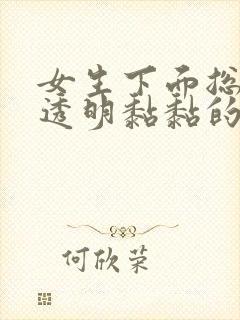 女生下面总
透明黏黏的
何欣荣